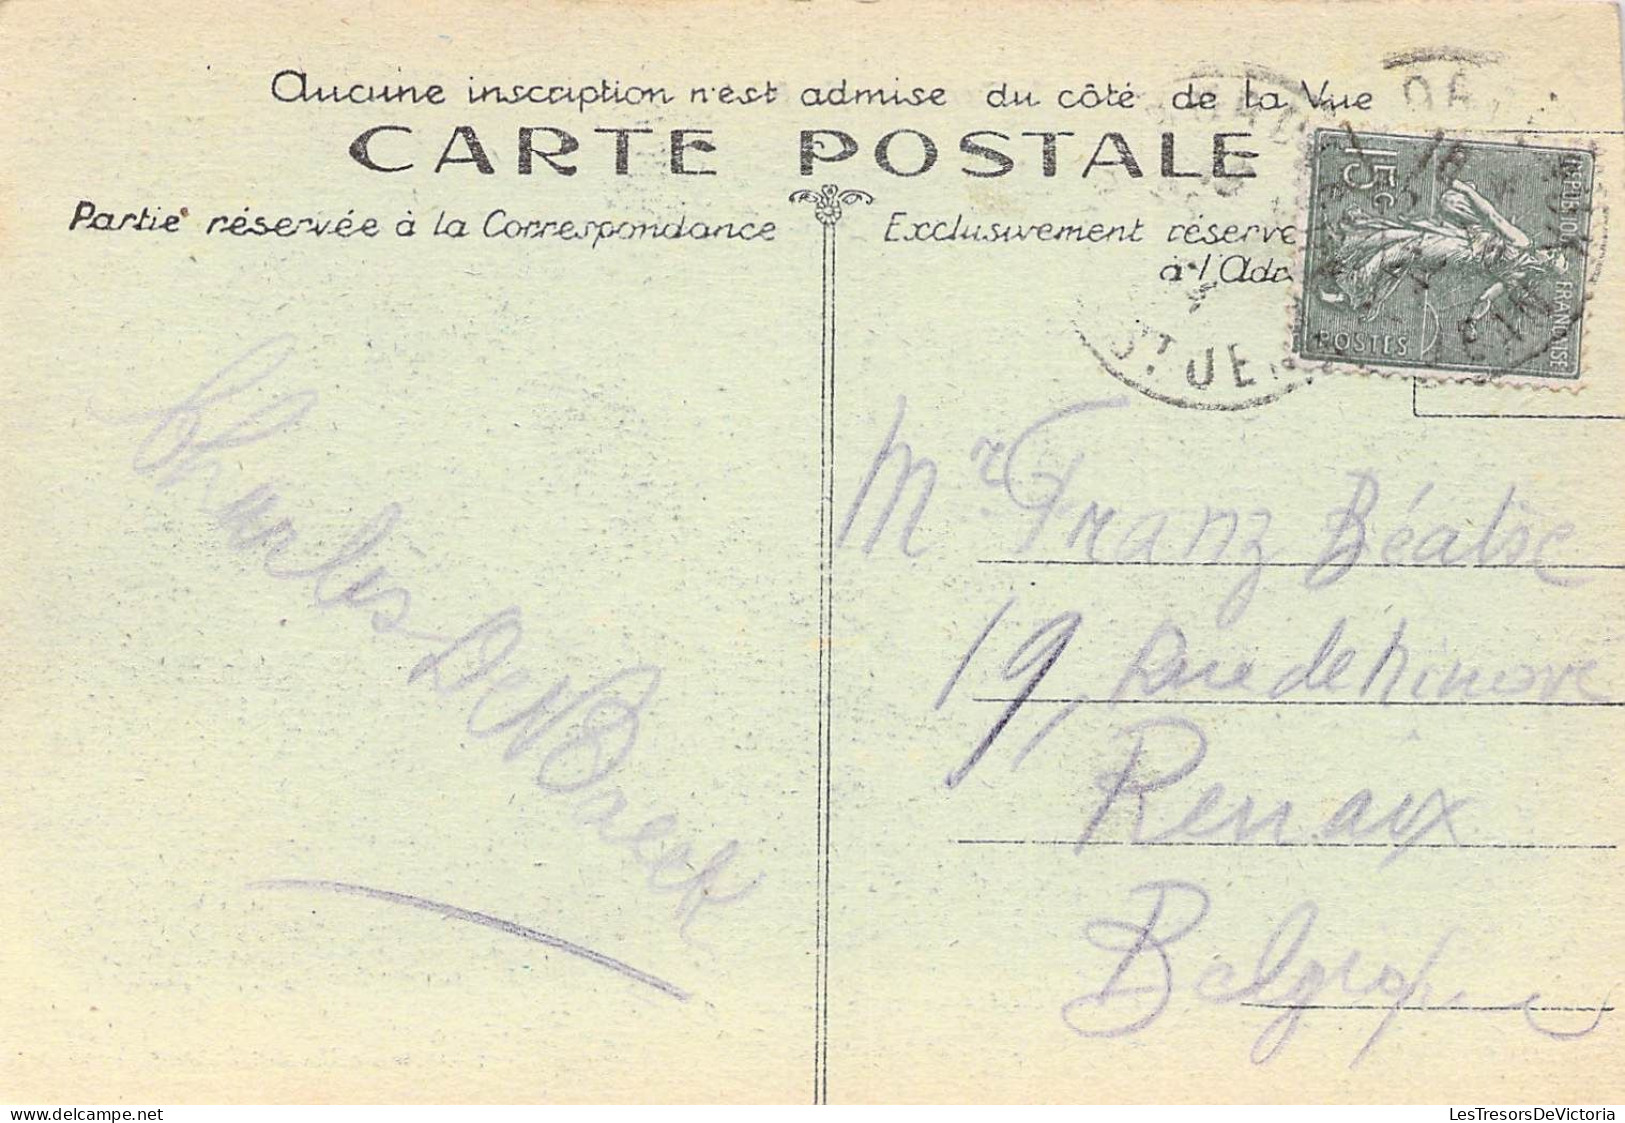 Aucune inscription n'est admise du côté de la Vue
CARTE POSTALE
Partie réservée à la Correspondance
Exclusivement réserve
à l'Adr
15c
REPUBLIQUE FRANÇAISE
POSTES
ST JE
Charles De Braeck
Mr Franz Béatse
19, Rue de Ninove
Renaix
Belgique
LesTresorsDeVictoria
be.delcampe.net